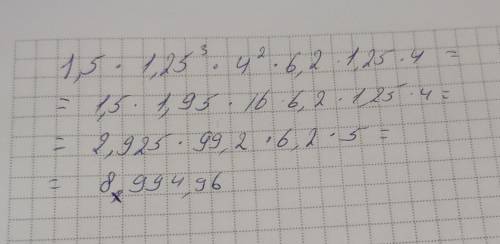 1,5 · 1,25³ · 4² · 6,2 · 1,25 · 4 =
= 1,5 · 1,95 · 16 · 6,2 · 1,25 · 4 =
= 2,925 · 99,2 · 6,2 · 5 =
= 8.994,96